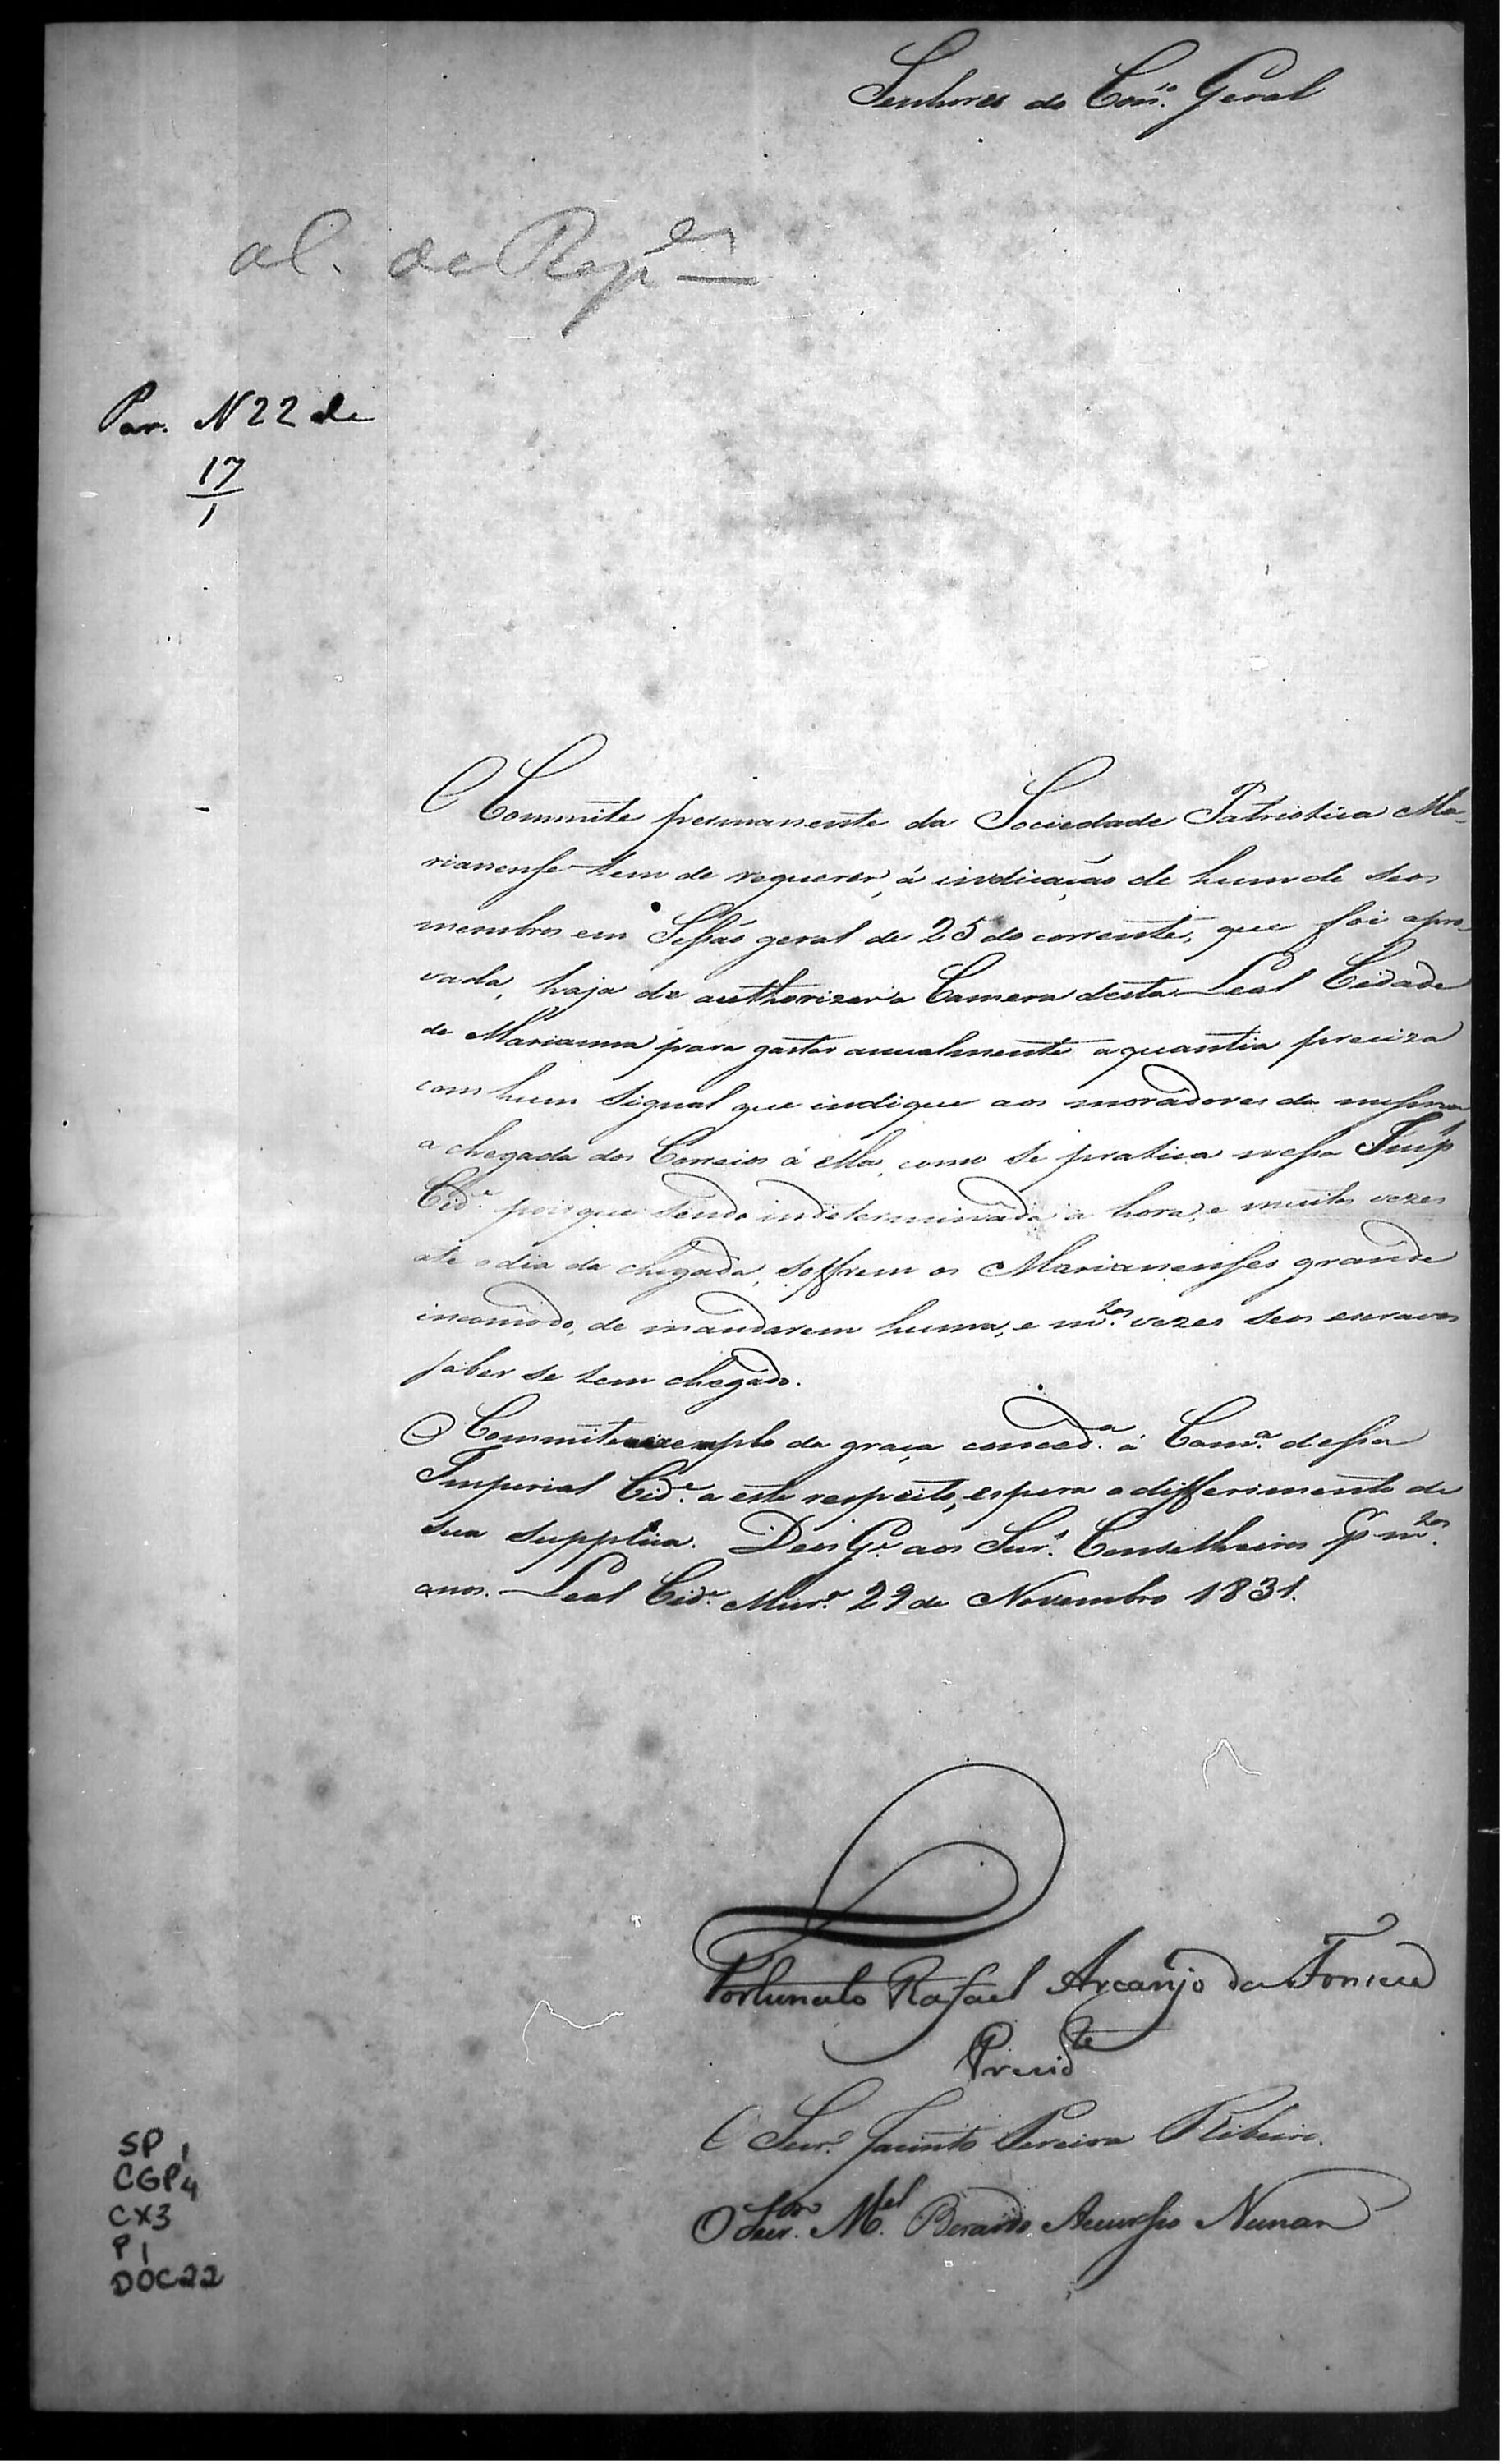 Senhores do Con.º Geral
al. de Rep.es
Par. N 22 de
17
1
O Committe permanente da Sociedade Patriotica Ma-
rianense tem de requerer, á indicação de hum de seos
membros em Sessão geral de 25 do corrente, que foi apro-
vada, haja de authorizar a Camera desta Leal Cidade
de Marianna para gastar anualmente a quantia preciza
com hum signal que indique aos moradores da mesma
a chegada dos Correios á ella, como se pratica nessa Imp.
Cid.e porque sendo indeterminada a hora, e muitas vezes
ate o dia da chegada, soffrem os Marianenses grande
incomodo, de mandarem huma, e m.tas vezes seus escravos
saber se tem chegado.
O Committe exemplo da graça conced.a á Cam.a dessa
Imperial Cid.e a este respeito, espera o differimento de
sua supplica. Deos G.e aos Snr.s Conselheiros p.r m.tos
anos. Leal Cid.e Mar.a 29 de Novembro 1831.
Fortunato Rafael Arcanjo da Fonseca
Presid.te
O Secr.o Jacinto Pereira Ribeiro.
O Secr.o M.el Berardo Accursio Nunan
SP
CGP 1/4
CX3
P1
DOC22